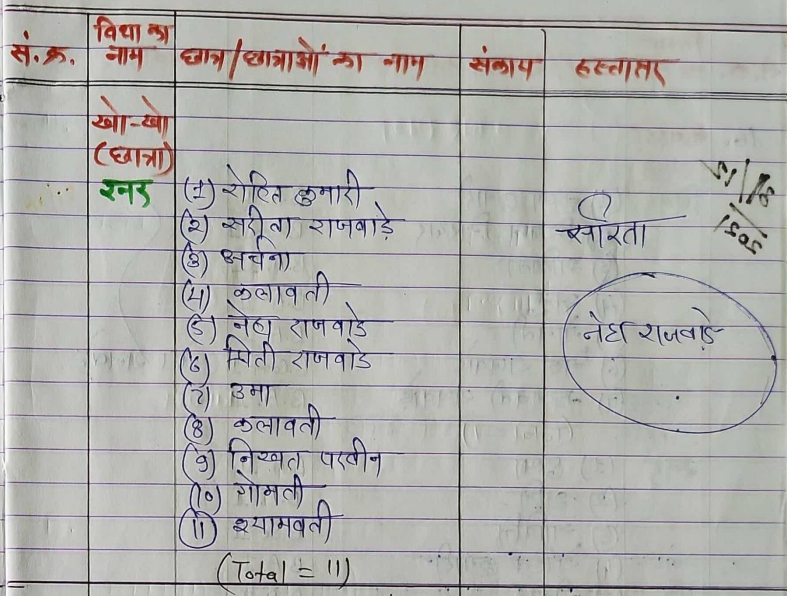 सं. क्र. विधा का नाम छात्र/छात्राओं का नाम संकाय हस्ताक्षर
खो-खो
(छात्रा)
रनर
(1) रोहित कुमारी
(2) सरीता राजवाड़े
सरिता
(3) अर्चना
(4) कलावती
(5) नेहा राजवाडे
नेहा राजवाड़े
(6) मिती राजवाडे
(7) उमा
(8) कलावती
(9) निखत परवीन
(10) गोमती
(11) श्यामवती
(Total = 11)